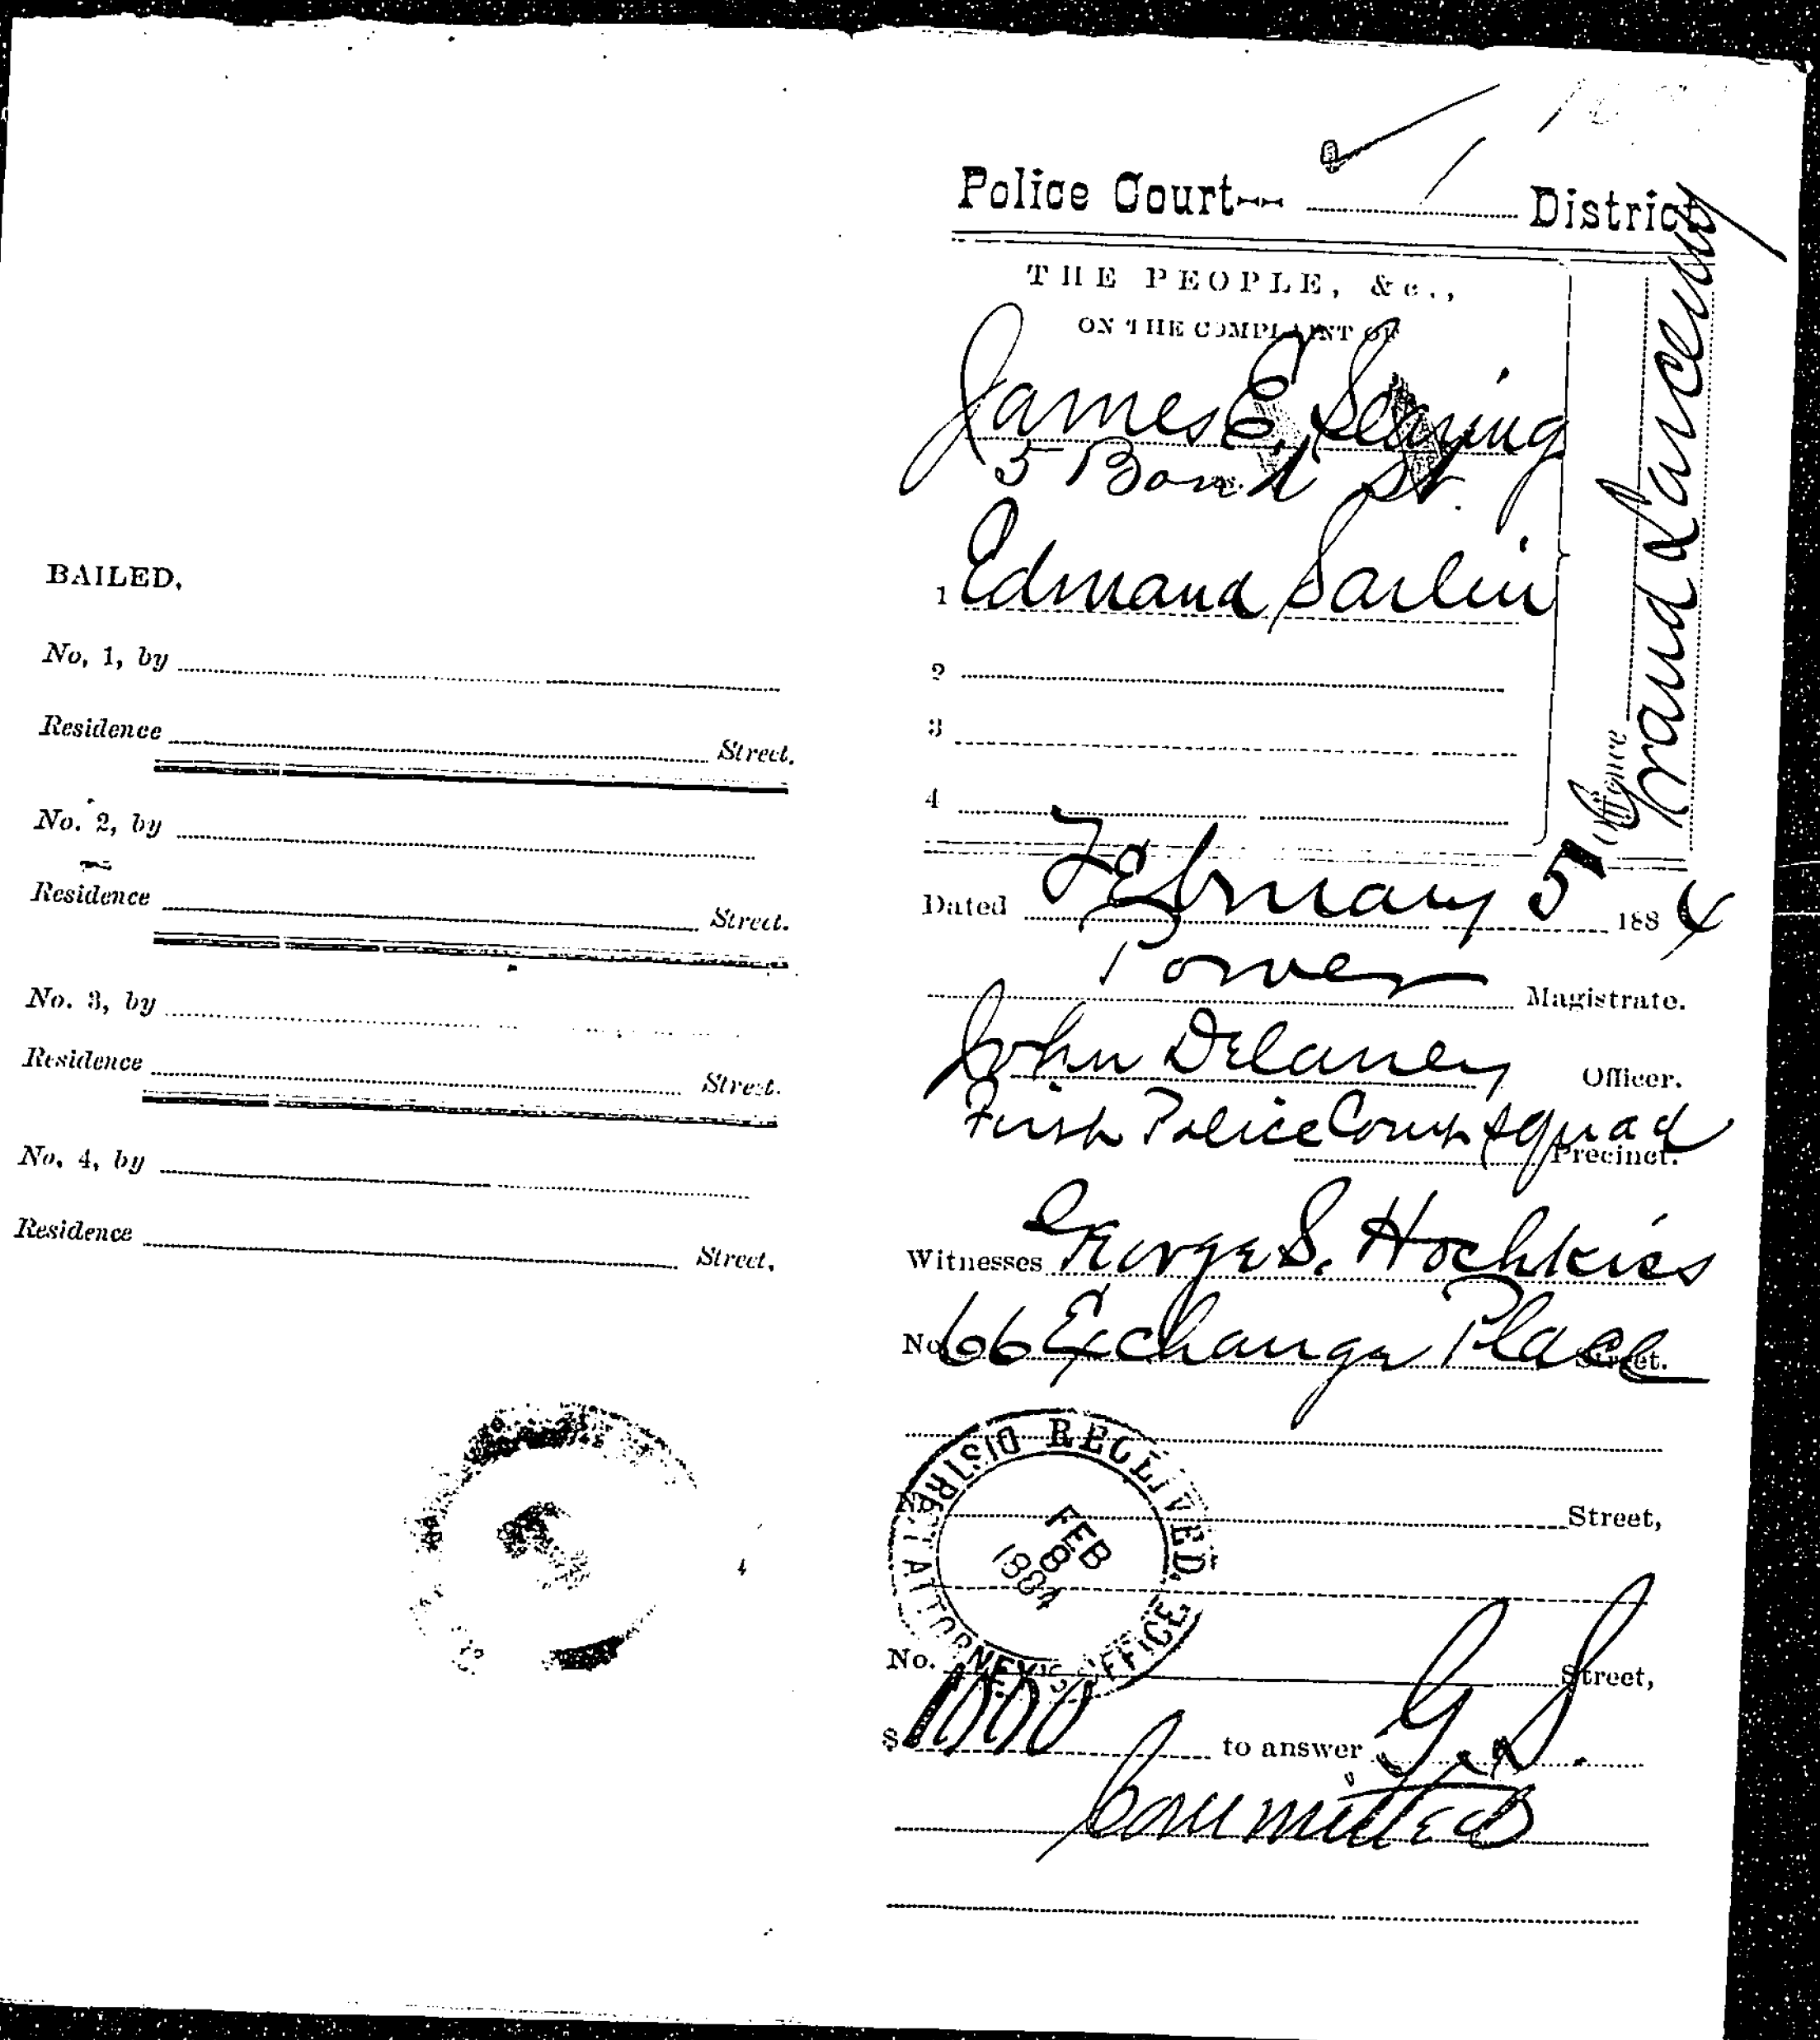 BAILED,
No, 1, by
Residence Street.
No. 2, by
Residence Street.
No. 3, by
Residence Street.
No, 4, by
Residence Street,
Police Court-- 1 District
THE PEOPLE, &c.,
ON THE COMPLAINT OF
James E. Searing
5 Bond St.
1 Edmand Sarlin
2
3
4
Offence Grand Larceny
Dated February 5 1884
Power Magistrate.
John Delaney Officer.
First Police Court Squad
Precinct.
Witnesses George S. Hochkiss
No 66 Exchange Place
Street.
No. Street,
RECEIVED.
DISTRICT ATTORNEY'S OFFICE
FEB
8
1884
No. Street,
$1000 to answer G. S.
Committed